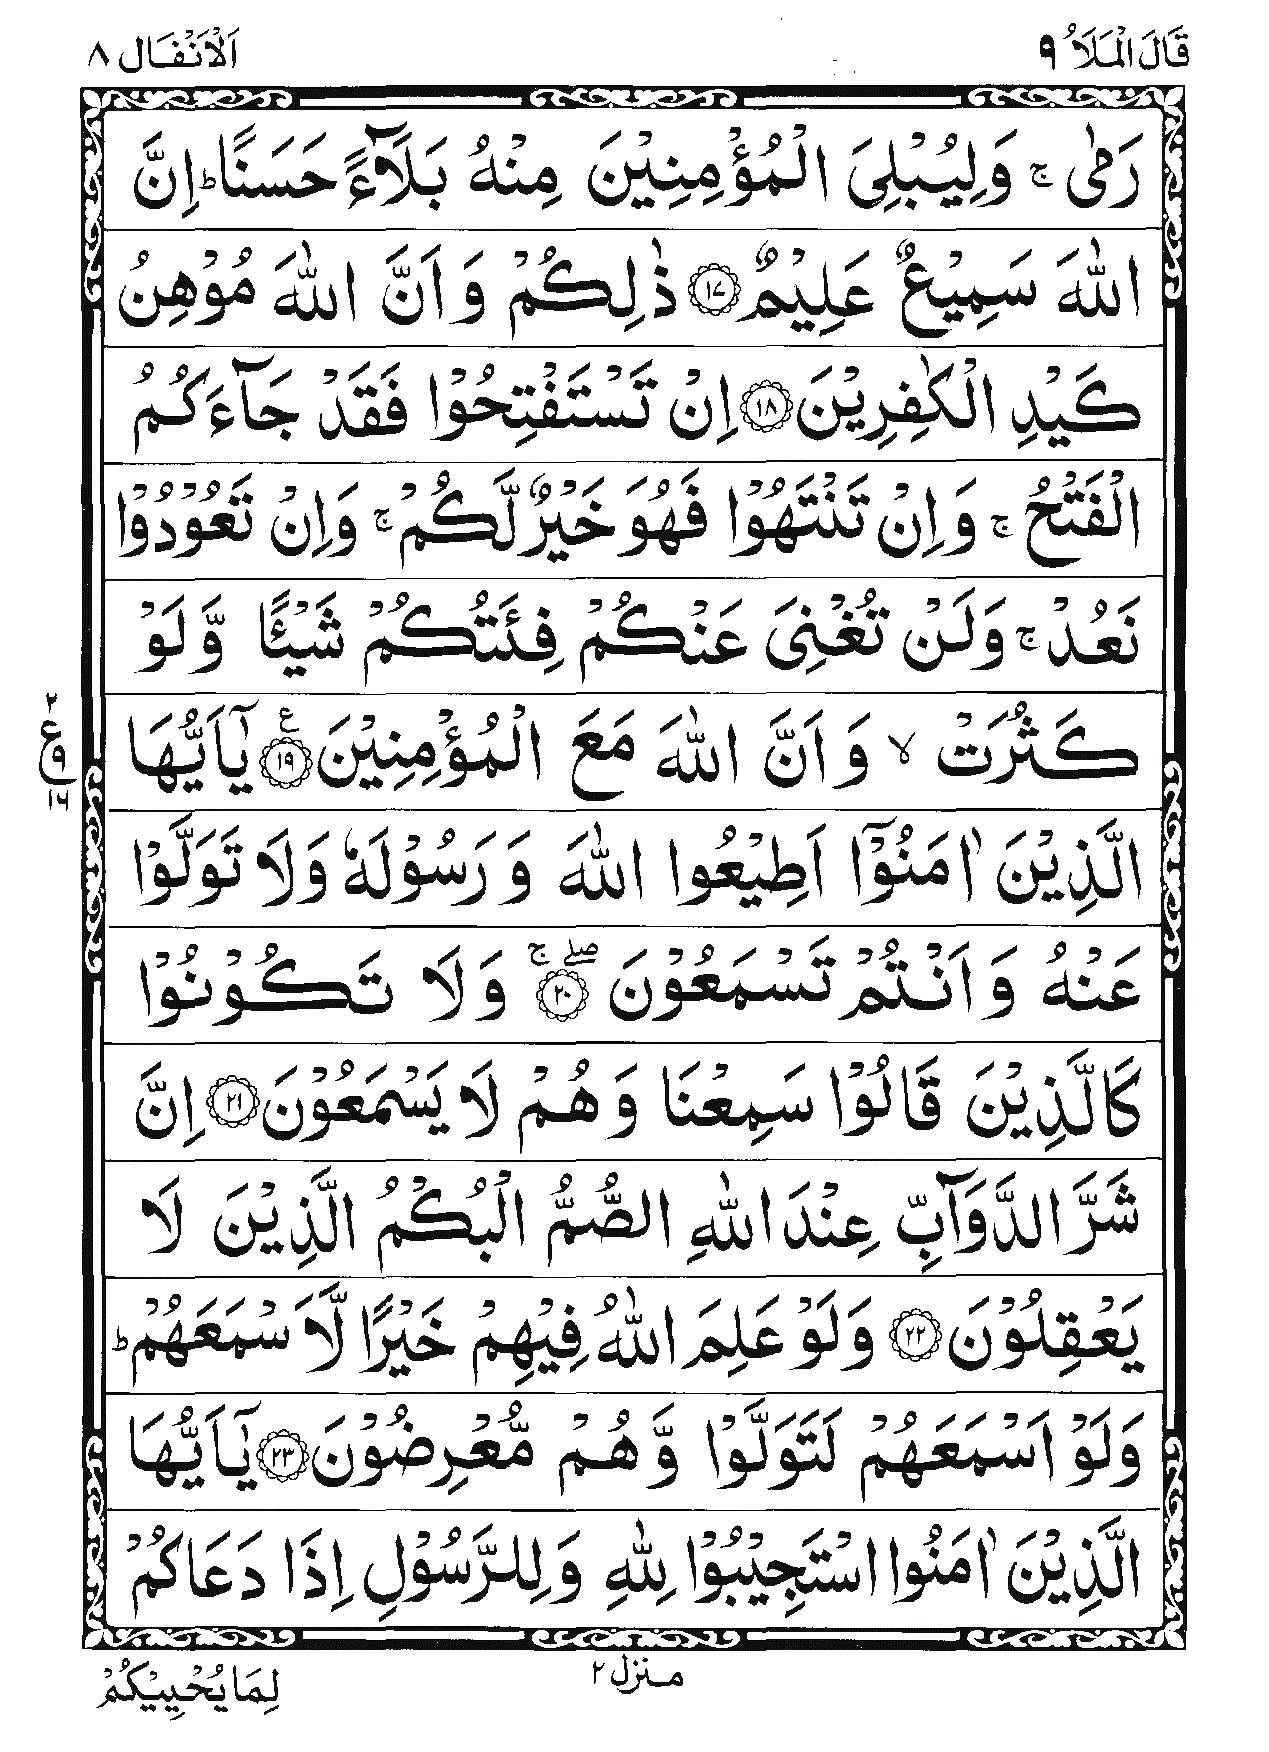 قَالَ الْمَلَاُ ٩
اَلْاَنْفَال ٨
رَمٰى ۚ وَلِيُبْلِىَ الْمُؤْمِنِيْنَ مِنْهُ بَلَآءً حَسَنًا ؕ اِنَّ
اللّٰهَ سَمِيْعٌ عَلِيْمٌ ﴿١٧﴾ ذٰلِكُمْ وَاَنَّ اللّٰهَ مُوْهِنُ
كَيْدِ الْكٰفِرِيْنَ ﴿١٨﴾ اِنْ تَسْتَفْتِحُوْا فَقَدْ جَآءَكُمُ
الْفَتْحُ ۚ وَاِنْ تَنْتَهُوْا فَهُوَ خَيْرٌ لَّكُمْ ۚ وَاِنْ تَعُوْدُوْا
نَعُدْ ۚ وَلَنْ تُغْنِىَ عَنْكُمْ فِئَتُكُمْ شَيْئًا وَّلَوْ
كَثُرَتْ ۙ وَاَنَّ اللّٰهَ مَعَ الْمُؤْمِنِيْنَ ﴿١٩﴾ ع يٰۤاَيُّهَا
٢
ع
٩
١٦
الَّذِيْنَ اٰمَنُوْۤا اَطِيْعُوا اللّٰهَ وَرَسُوْلَهٗ وَلَا تَوَلَّوْا
عَنْهُ وَاَنْتُمْ تَسْمَعُوْنَ ﴿٢٠﴾ ۖۚ وَلَا تَكُوْنُوْا
كَالَّذِيْنَ قَالُوْا سَمِعْنَا وَهُمْ لَا يَسْمَعُوْنَ ﴿٢١﴾ اِنَّ
شَرَّ الدَّوَآبِّ عِنْدَ اللّٰهِ الصُّمُّ الْبُكْمُ الَّذِيْنَ لَا
يَعْقِلُوْنَ ﴿٢٢﴾ وَلَوْ عَلِمَ اللّٰهُ فِيْهِمْ خَيْرًا لَّاَسْمَعَهُمْ ؕ
وَلَوْ اَسْمَعَهُمْ لَتَوَلَّوْا وَّهُمْ مُّعْرِضُوْنَ ﴿٢٣﴾ يٰۤاَيُّهَا
الَّذِيْنَ اٰمَنُوا اسْتَجِيْبُوْا لِلّٰهِ وَلِلرَّسُوْلِ اِذَا دَعَاكُمْ
منزل ٢
لِمَا يُحْيِيْكُمْ